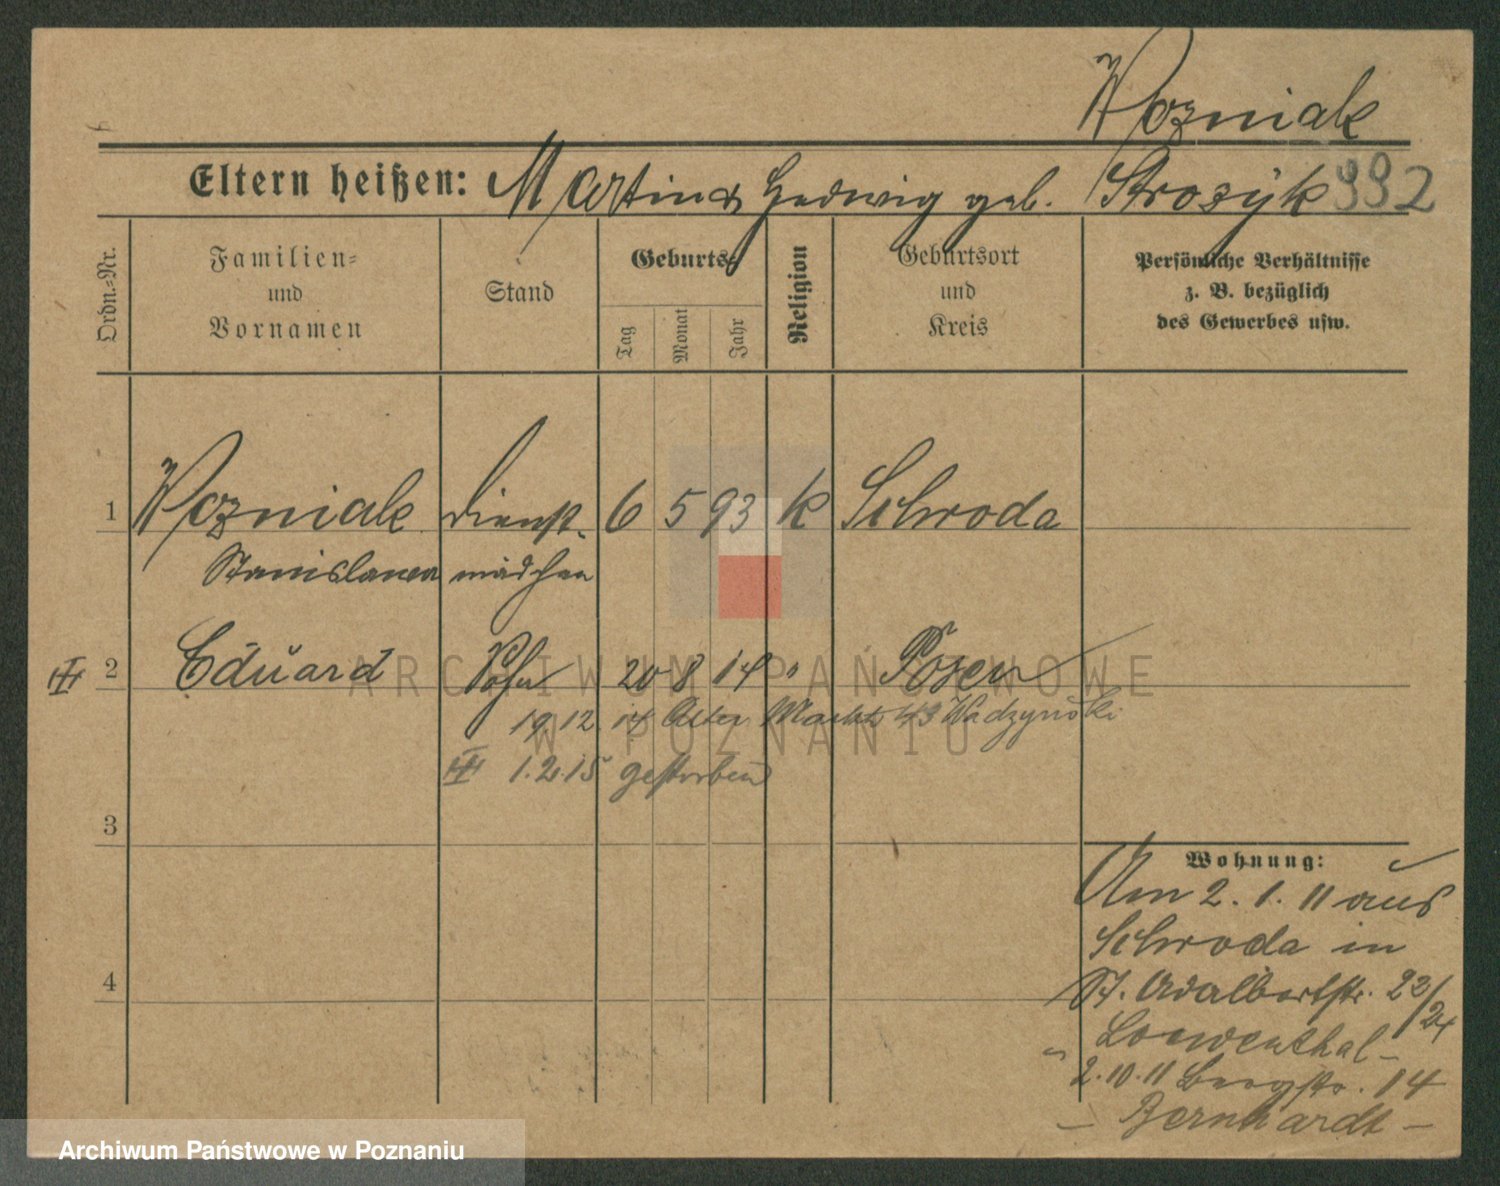 Wozniak
Eltern heißen: Martin & Hedwig geb. Strozyk 992
Ordn.=Nr.
Familien=
und
Vornamen
Stand
Geburts=
Tag
Monat
Jahr
Religion
Geburtsort
und
Kreis
Persönliche Verhältnisse
z. B. bezüglich
des Gewerbes usw.
1 Wozniak Dienst- 6 5 93 k Schroda
Stanislawa mädchen
2 Eduard Sohn 20 8 14 " Posen
19.12.14 Alter Markt 43 Wadzynski
1.2.15 gestorben
3
4
Wohnung:
Am 2. 1. 11 aus
Schroda in
St. Adalbertstr. 22/24
Loewenthal -
2.10.11 Bergstr. 14
- Bernhardt -
ARCHIWUM PAŃSTWOWE
W POZNANIU
Archiwum Państwowe w Poznaniu